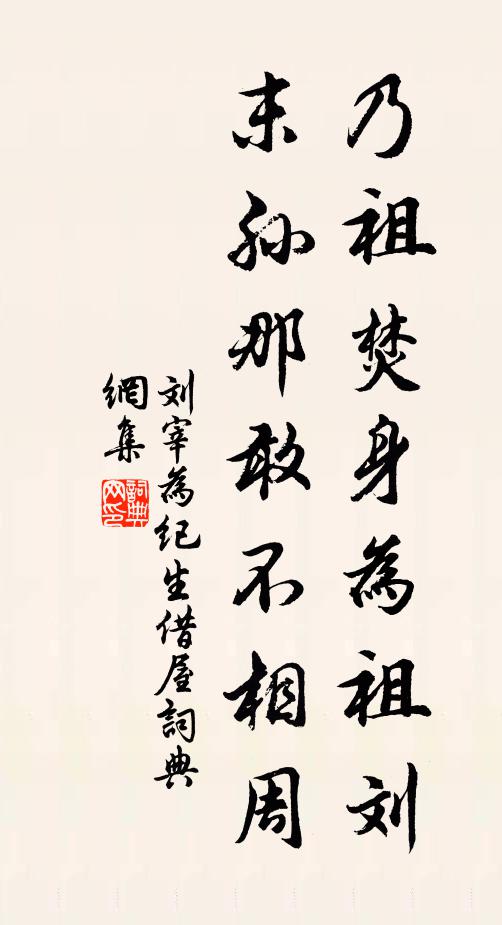 乃祖焚身為祖刘
末孙那敢不相周
刘宰為纪生借屋詞典
網集
詞典
网印